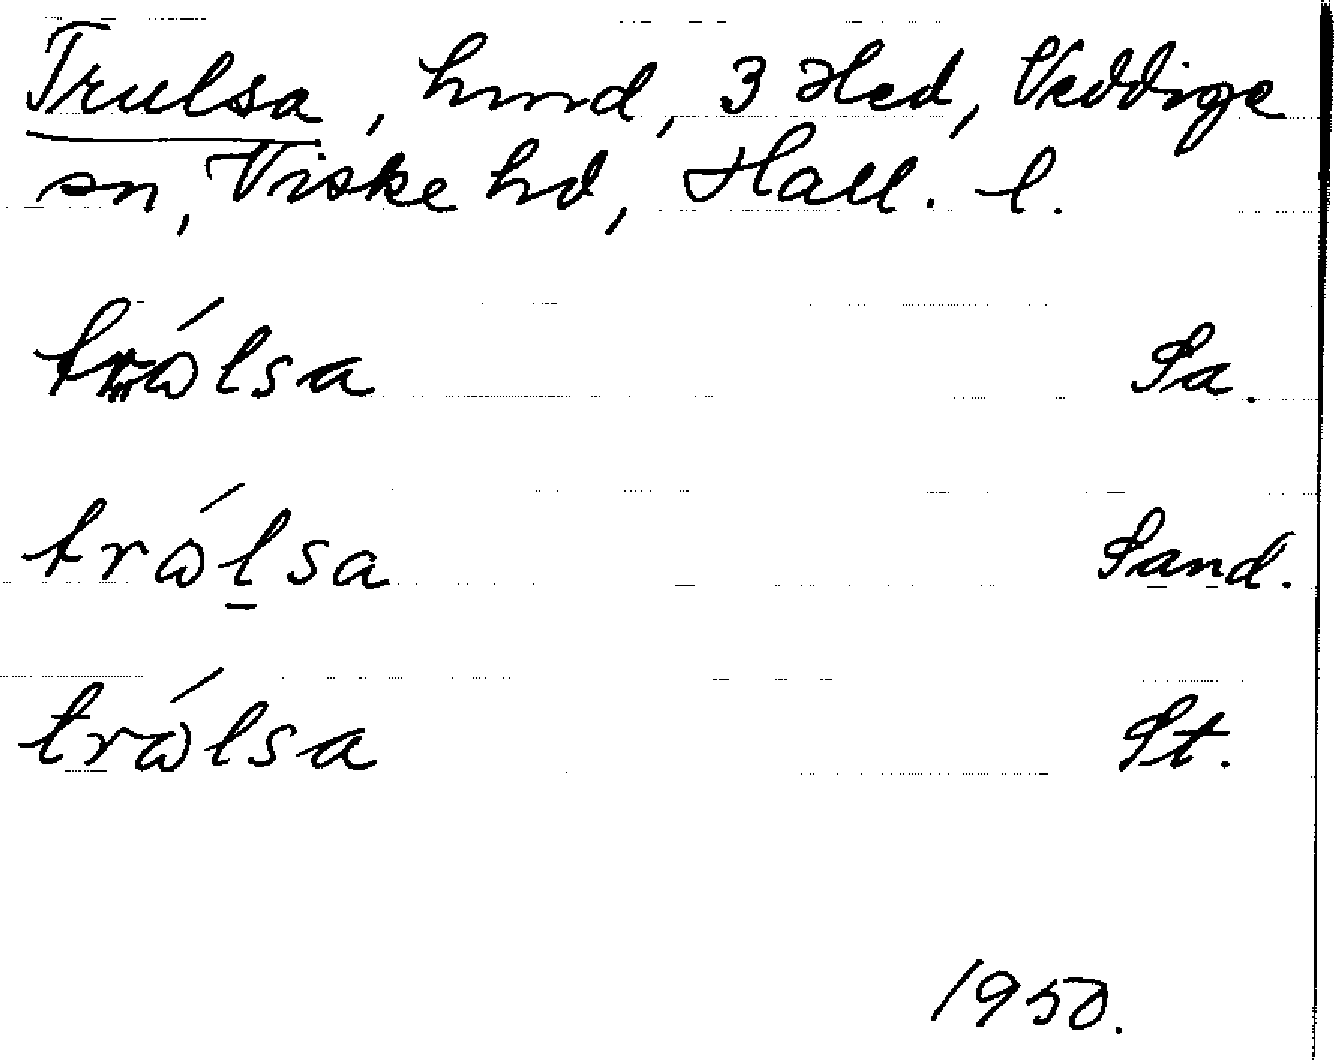 Trulsa, hmd, 3 Hed, Veddige
sn, Viske hd, Hall. l.
trɷ́lsa Sa.
trɷ́l̠sa Sand.
trɷ́lsa St.
1950.